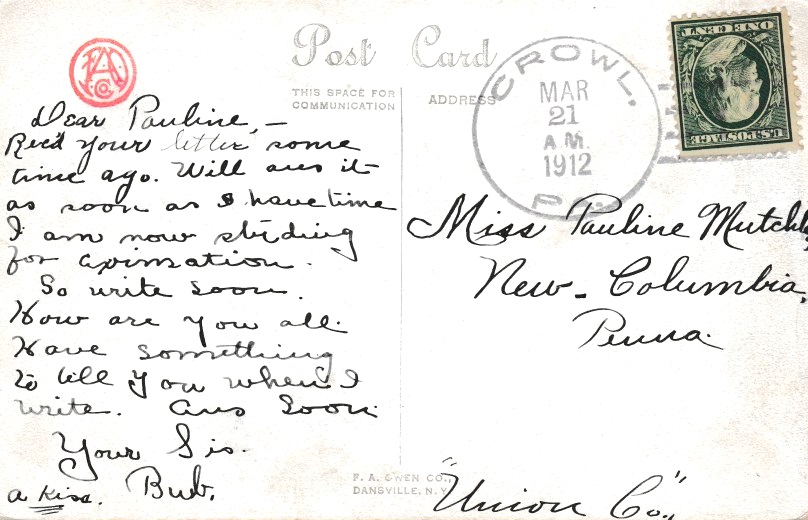 Post Card
THIS SPACE FOR
COMMUNICATION
ADDRESS
CROWL,
MAR
21
A.M.
1912
PA.
ONE CENT
U.S. POSTAGE
Dear Pauline, —
Rec'd your letter some
time ago. Will ans it
as soon as I have time
I am now studing
for aximation.
So write soon.
How are you all.
Have something
to tell you when I
write. Ans Soon
Your Sis.
Bub.
a kiss.
Miss Pauline
New-Columbia,
Penna.
"Union Co.,"
F. A. OWEN CO.,
DANSVILLE, N.Y.